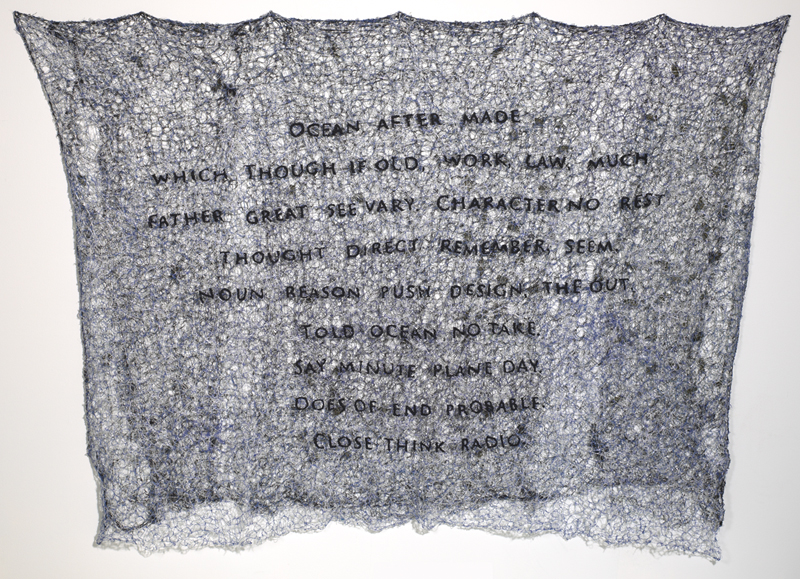 OCEAN AFTER MADE
WHICH, THOUGH IF OLD, WORK, LAW, MUCH
FATHER GREAT SEE VARY. CHARACTER NO REST
THOUGHT DIRECT REMEMBER, SEEM.
NOUN BEASON PUSH DESIGN, THE OUT.
TOLD OCEAN NO TAKE.
SAY MINUTE PLANE DAY.
DOES OF END PROBABLE.
CLOSE THINK RADIO.